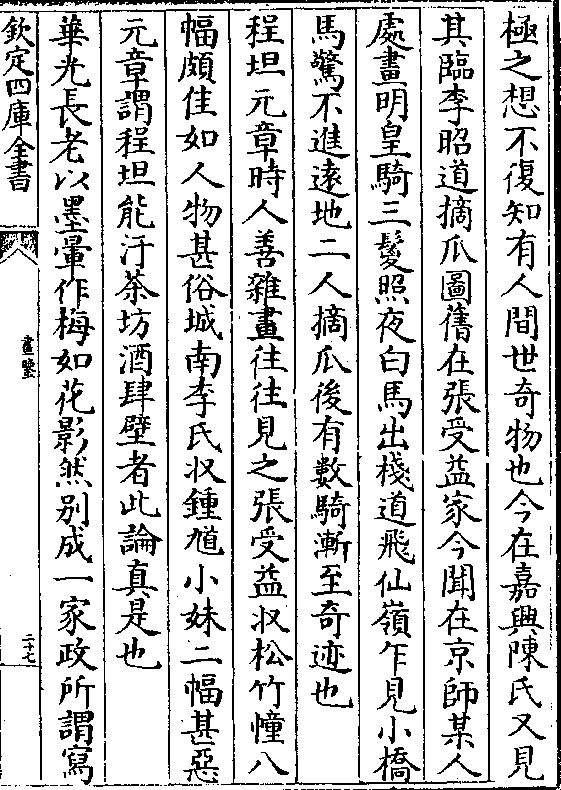 極之想不復知有人間世奇物也今在嘉興陳氏又見
其臨李昭道摘瓜圖舊在張受益家今聞在京師某人
處畫明皇騎三鬉照夜白馬出棧道飛仙嶺乍見小橋
馬驚不進遠地二人摘瓜後有數騎漸至奇迹也
程坦元章時人善雜畫往往見之張受益収松竹㡧八
幅頗佳如人物甚俗城南李氏収鍾馗小妹二幅甚惡
元章謂程坦能汙茶坊酒肆壁者此論真是也
華光長老以墨暈作梅如花影然别成一家政所謂寫
欽定四庫全書
畫鑒
二十七